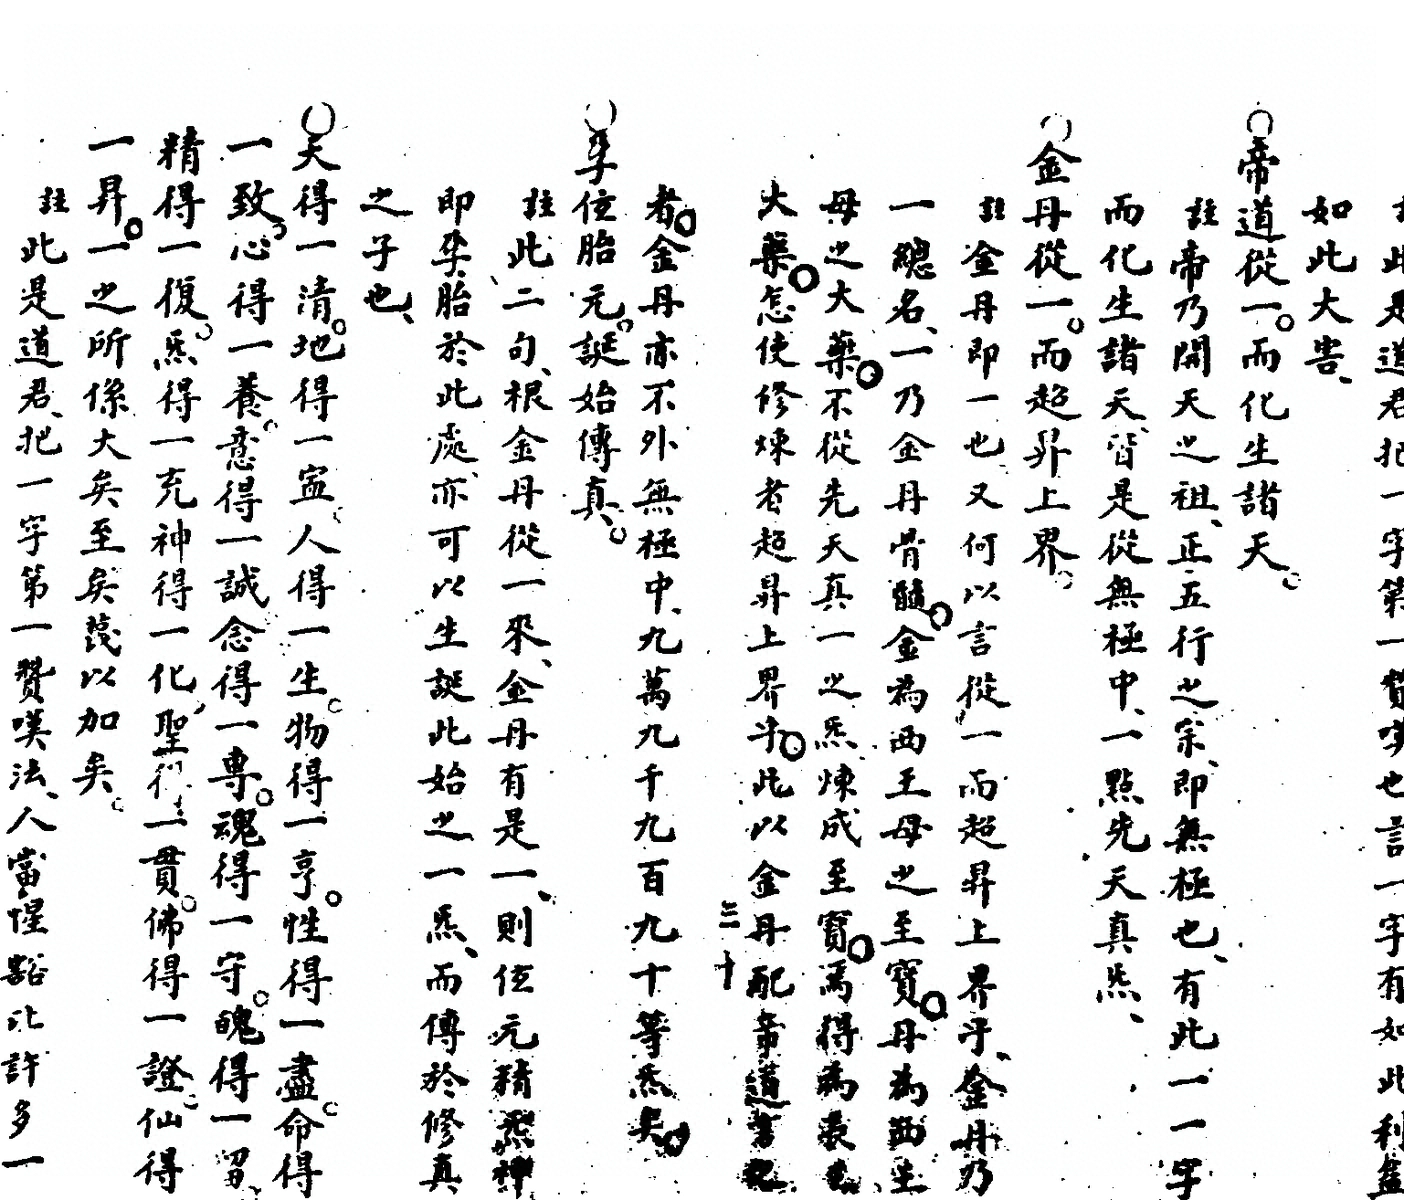 此是道君把一字第一贊嘆也言一字有如此利益
如此大害
帝道從一而化生諸天
註帝乃開天之祖正五行之宗即無極也有此一一字
而化生諸天皆是從無極中一點先天真炁
金丹從一而超昇上界
註金丹即一也又何以言從一而超昇上界乎金丹乃
一總名一乃金丹骨髓金為西王母之至寶丹為
母之大藥不從先天真一之炁煉成至寶焉得為
大藥怎使修煉者超昇上界乎此以金丹配帝道
三十
者金丹亦不外無極中九萬九千九百九十等炁矣
孕位胎元誕始傳真
註此二句根金丹從一來金丹有是一則位元精炁神
即孕胎於此處亦可以生誕此始之一炁而傳於修真
之子也
天得一清地得一寍人得一生物得一亨性得一盡命得
一致心得一養意得一誠念得一專魂得一守魄得一留
精得一復炁得一充神得一化聖得一貫佛得一證仙得
一昇一之所係大矣至矣蔑以加矣
註此是道君把一字第一贊嘆法人當惺豁此許多一